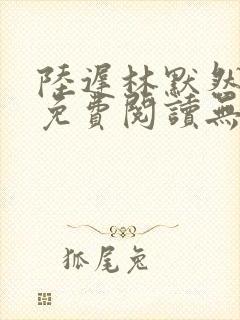 陸遲林默然
免費閱讀無
狐尾兔